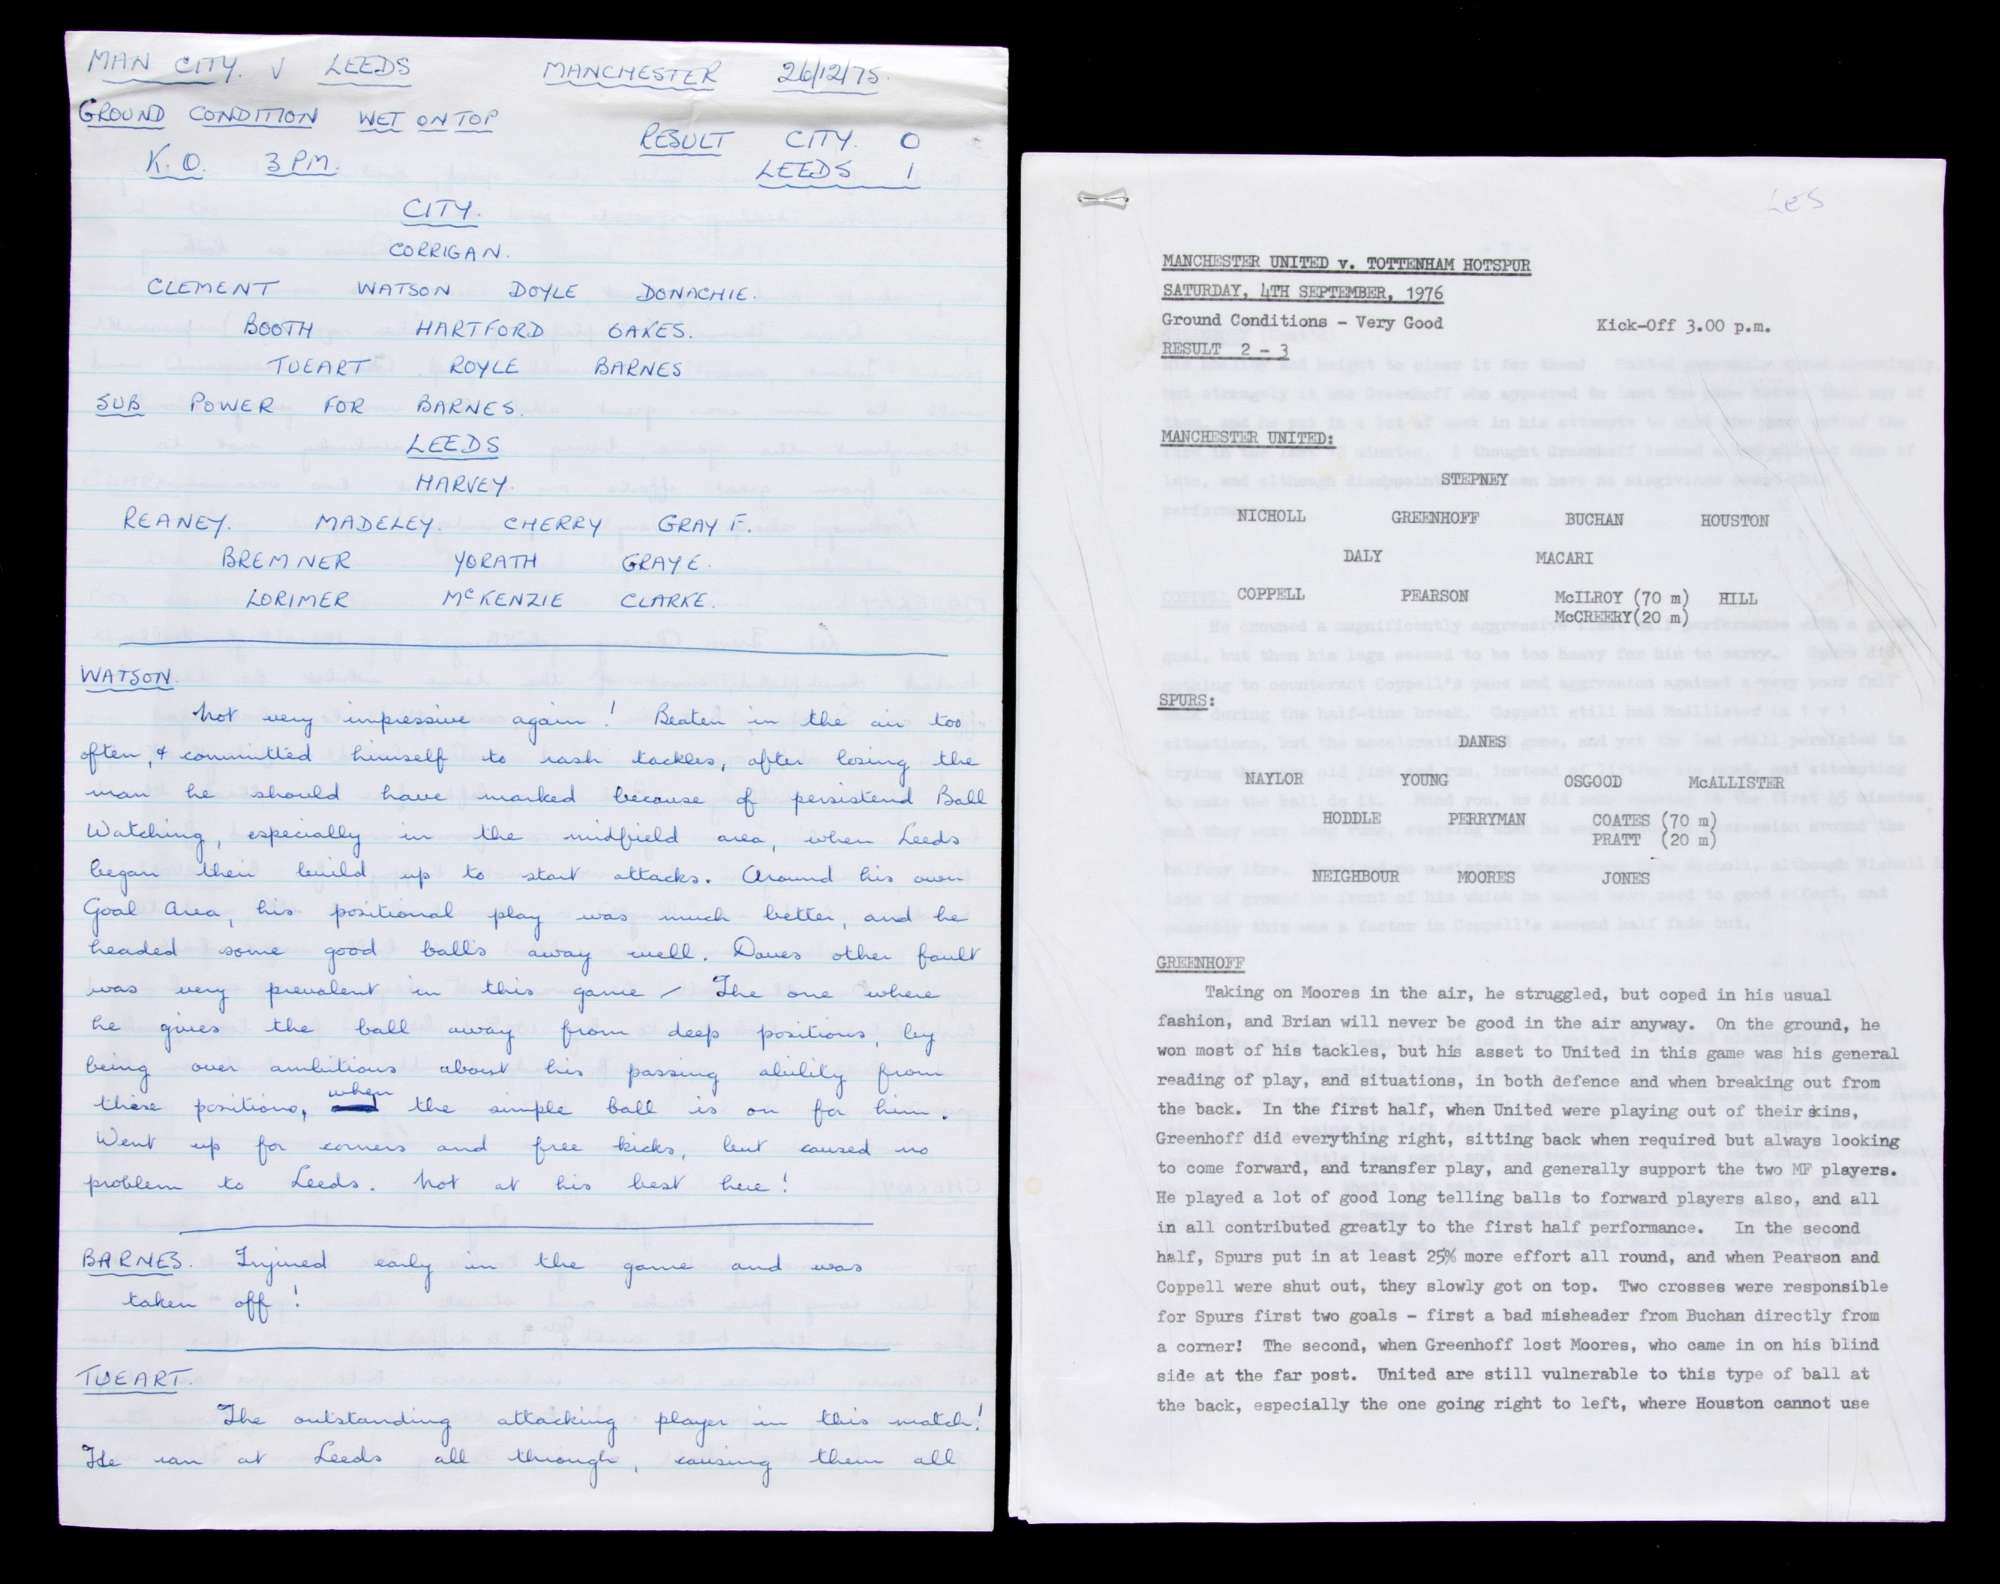 MAN CITY. V LEEDS MANCHESTER 26/12/75.
GROUND CONDITION WET ON TOP
RESULT CITY. 0
K.O. 3 PM.
LEEDS 1
CITY.
CORRIGAN.
CLEMENT WATSON DOYLE DONACHIE.
BOOTH HARTFORD OAKES.
TUEART ROYLE BARNES
SUB POWER FOR BARNES.
LEEDS
HARVEY.
REANEY. MADELEY. CHERRY GRAY F.
BREMNER YORATH GRAY E.
LORIMER McKENZIE CLARKE.
WATSON.
Not very impressive again! Beaten in the air too
often, & committed himself to rash tackles, after losing the
man he should have marked because of persistend Ball
Watching, especially in the midfield area, when Leeds
began their build up to start attacks. Around his own
Goal Area, his positional play was much better, and he
headed some good balls away well. Daves other fault
was very prevalent in this game / The one where
he gives the ball away from deep positions, by
being over ambitious about his passing ability from
these positions, when the simple ball is on for him.
Went up for corners and free kicks, but caused no
problem to Leeds. Not at his best here!
BARNES. Injured early in the game and was
taken off!
TUEART.
The outstanding attacking player in this match!
He ran at Leeds all through, causing them all
LES
MANCHESTER UNITED v. TOTTENHAM HOTSPUR
SATURDAY, 4TH SEPTEMBER, 1976
Ground Conditions - Very Good Kick-Off 3.00 p.m.
RESULT 2 - 3
MANCHESTER UNITED:
STEPNEY
NICHOLL GREENHOFF BUCHAN HOUSTON
DALY MACARI
COPPELL PEARSON McILROY (70 m) HILL
McCREERY(20 m)
SPURS:
DANES
NAYLOR YOUNG OSGOOD McALLISTER
HODDLE PERRYMAN COATES (70 m)
PRATT (20 m)
NEIGHBOUR MOORES JONES
GREENHOFF
Taking on Moores in the air, he struggled, but coped in his usual
fashion, and Brian will never be good in the air anyway. On the ground, he
won most of his tackles, but his asset to United in this game was his general
reading of play, and situations, in both defence and when breaking out from
the back. In the first half, when United were playing out of their skins,
Greenhoff did everything right, sitting back when required but always looking
to come forward, and transfer play, and generally support the two MF players.
He played a lot of good long telling balls to forward players also, and all
in all contributed greatly to the first half performance. In the second
half, Spurs put in at least 25% more effort all round, and when Pearson and
Coppell were shut out, they slowly got on top. Two crosses were responsible
for Spurs first two goals - first a bad misheader from Buchan directly from
a corner! The second, when Greenhoff lost Moores, who came in on his blind
side at the far post. United are still vulnerable to this type of ball at
the back, especially the one going right to left, where Houston cannot use